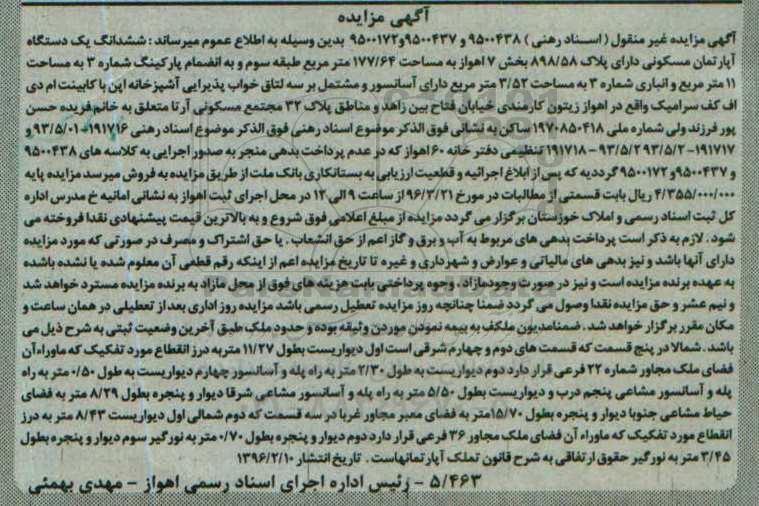 آگهی مزایده
آگهی مزایده غیر منقول (اسـناد رهنی) ۹۵۰۰۴۳۸ و ۹۵۰۰۴۳۷و۹۵۰۰۱۷۲ بدین وسیله به اطلاع عموم میرساند: ششدانگ یک دستگاه
آپارتمان مسکونی دارای پلاک ۸۹۸/۵۸ بخش ۷ اهواز به مساحت ۱۷۷/۶۴ متر مربع طبقه سوم و به انضمام پارکینگ شماره ۳ به مساحت
۱۱ متر مربع و انباری شماره ۳ به مساحت ۳/۵۲ متر مربع دارای آسانسور و مشتمل بر سه اتاق خواب پذیرایی آشپزخانه اپن با کابینت ام دی
اف کف سرامیک واقع در اهواز زیتون کارمندی خیابان فتاح بین زاهد و مناطق پلاک ۳۲ مجتمع مسکونی آرتا متعلق به خانم فریده حسن
پور فرزند ولی شماره ملی ۱۹۷۰۸۵۰۴۱۸ ساکن به نشانی فوق الذکر موضوع اسناد رهنی فوق الذکر موضوع اسناد رهنی ۱۹۱۷۱۶-۹۳/۵/۰۱ و
۱۹۱۷۱۷-۹۳/۵/۲ ۹۳/۵/۲ - ۱۹۱۷۱۸ تنظیمی دفتر خانه ۶۰ اهواز که در عدم پرداخت بدهی منجر به صدور اجرایی به کلاسه های ۹۵۰۰۴۳۸
و ۹۵۰۰۴۳۷و ۹۵۰۰۱۷۲ گرددیه که پس از ابلاغ اجرائیه و قطعیت ارزیابی به بستانکاری بانک ملت از طریق مزایده به فروش میرسد مزایده پایه
۴/۳۵۵/۰۰۰/۰۰۰ ریال بابت قسمتی از مطالبات در مورخ ۹۶/۲/۲۱ از ساعت ۹ الی ۱۲ در محل اجرای ثبت اهواز به نشانی امانیه خ مدرس اداره
کل ثبت اسناد رسمی و املاک خوزستان برگزار می گردد مزایده از مبلغ اعلامی فوق شروع و به بالاترین قیمت پیشنهادی نقدا فروخته می
شود. لازم به ذکر است پرداخت بدهی های مربوط به آب و برق و گاز اعم از حق انشعاب. یا حق اشتراک و مصرف در صورتی که مورد مزایده
دارای آنها باشد و نیز بدهی های مالیاتی و عوارض و شهرداری و غیره تا تاریخ مزایده اعم از اینکه رقم قطعی آن معلوم شده یا نشده باشد
به عهده برنده مزایده است و نیز در صورت وجود مازاد، وجوه پرداختی بابت هزینه های فوق از محل مازاد به برنده مزایده مسترد خواهد شد
و نیم عشر و حق مزایده نقدا وصول می گردد ضمنا چنانچه روز مزایده تعطیل رسمی باشد مزایده روز اداری بعد از تعطیلی در همان ساعت و
مکان مقرر برگزار خواهد شد. ضمنا مدیون ملکف به بیمه نمودن موردن وثیقه بوده و حدود ملک طبق آخرین وضعیت ثبتی به شرح ذیل می
باشد. شمالا در پنج قسمت که قسمت های دوم و چهارم شرقی است اول دیواریست بطول ۱۱/۲۷ متر به درز انقطاع مورد تفکیک که ماوراء آن
فضای ملک مجاور شماره ۲۲ فرعی قرار دارد دوم دیواریست به طول ۲/۳۰ متر به راه پله و آسانسور چهارم دیواریست به طول ۰/۵۰ متر به راه
پله و آسانسور مشاعی پنجم درب و دیواریست بطول ۵/۵۰ متر به راه پله و آسانسور مشاعی شرقا دیوار و پنجره بطول ۸/۲۹ متر به فضای
حیاط مشاعی جنوبا دیوار و پنجره بطول ۱۵/۷۰متر به فضای معبر مجاور غربا در سه قسمت که دوم شمالی اول دیواریست ۸/۴۳ متر به درز
انقطاع مورد تفکیک که ماوراء آن فضای ملک مجاور ۳۶ فرعی قرار دارد دوم دیوار و پنجره بطول ۰/۷۰ متر به نورگیر سوم دیوار و پنجره بطول
۳/۴۵ متر به نورگیر حقوق ارتفاقی به شرح قانون تملک آپارتمانهاست. تاریخ انتشار ۱۳۹۶/۲/۱۰
۵/۴۶۳ - رئیس اداره اجرای اسناد رسمی اهواز - مهدی بهمئی